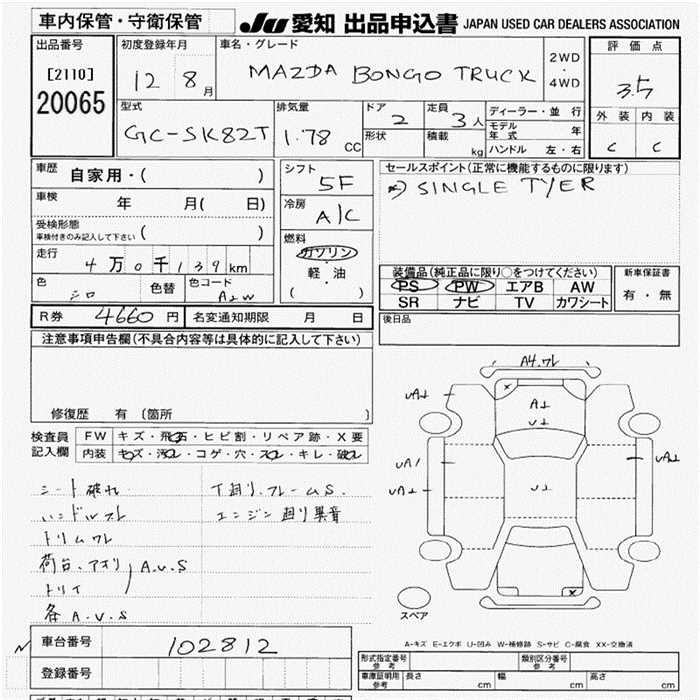 車内保管・守衛保管
JU 愛知 出品申込書 JAPAN USED CAR DEALERS ASSOCIATION
出品番号
[2110]
20065
初度登録年月
12 8月
車名・グレード
MAZDA BONGO TRUCK
2WD
・
4WD
評価点
3.5
外装 内装
C C
型式
GC-SK82T
排気量
1.78 CC
ドア
2
定員
3人
形状
積載
kg
ディーラー・並行
モデル年式 年
ハンドル 左・右
車歴 自家用・( )
車検 年 月( 日)
受検形態
車検付きのみ記入して下さい ( )
走行
4万0千139km
色 シロ 色替 色コード A2W
シフト
5F
冷房
A/C
燃料
ガソリン
・
軽・油
( )
セールスポイント(正常に機能するものに限ります)
SINGLE TYER
装備品(純正品に限り○をつけてください)
PS PW エアB AW
SR ナビ TV カワシート
新車保証書
有・無
R券 4660円 名変通知期限 月 日
後日品
注意事項申告欄(不具合内容等は具体的に記入して下さい)
修復歴 有 〔箇所 〕
検査員記入欄
FW キズ・飛石・ヒビ割・リペア跡・X要
内装 キズ・汚れ・コゲ・穴・スレ・キレ・破れ
シート破れ
ハンドルスレ
トリムワレ
荷台.アオリ
トリイ
A.U.S
各 A.U.S
下廻り.フレームS.
エンジン廻り異音
A4.ワレ
A⊥
U⊥
U⊥
UA⊥
UA1
UA⊥
UA⊥
スペア
A-キズ E-エクボ U-凹み W-補修跡 S-サビ C-腐食 XX-交換済
車台番号 102812
登録番号
形式指定番号
参考
類別区分番号
参考
車庫証明用
参考
長さ cm
幅 cm
高さ cm